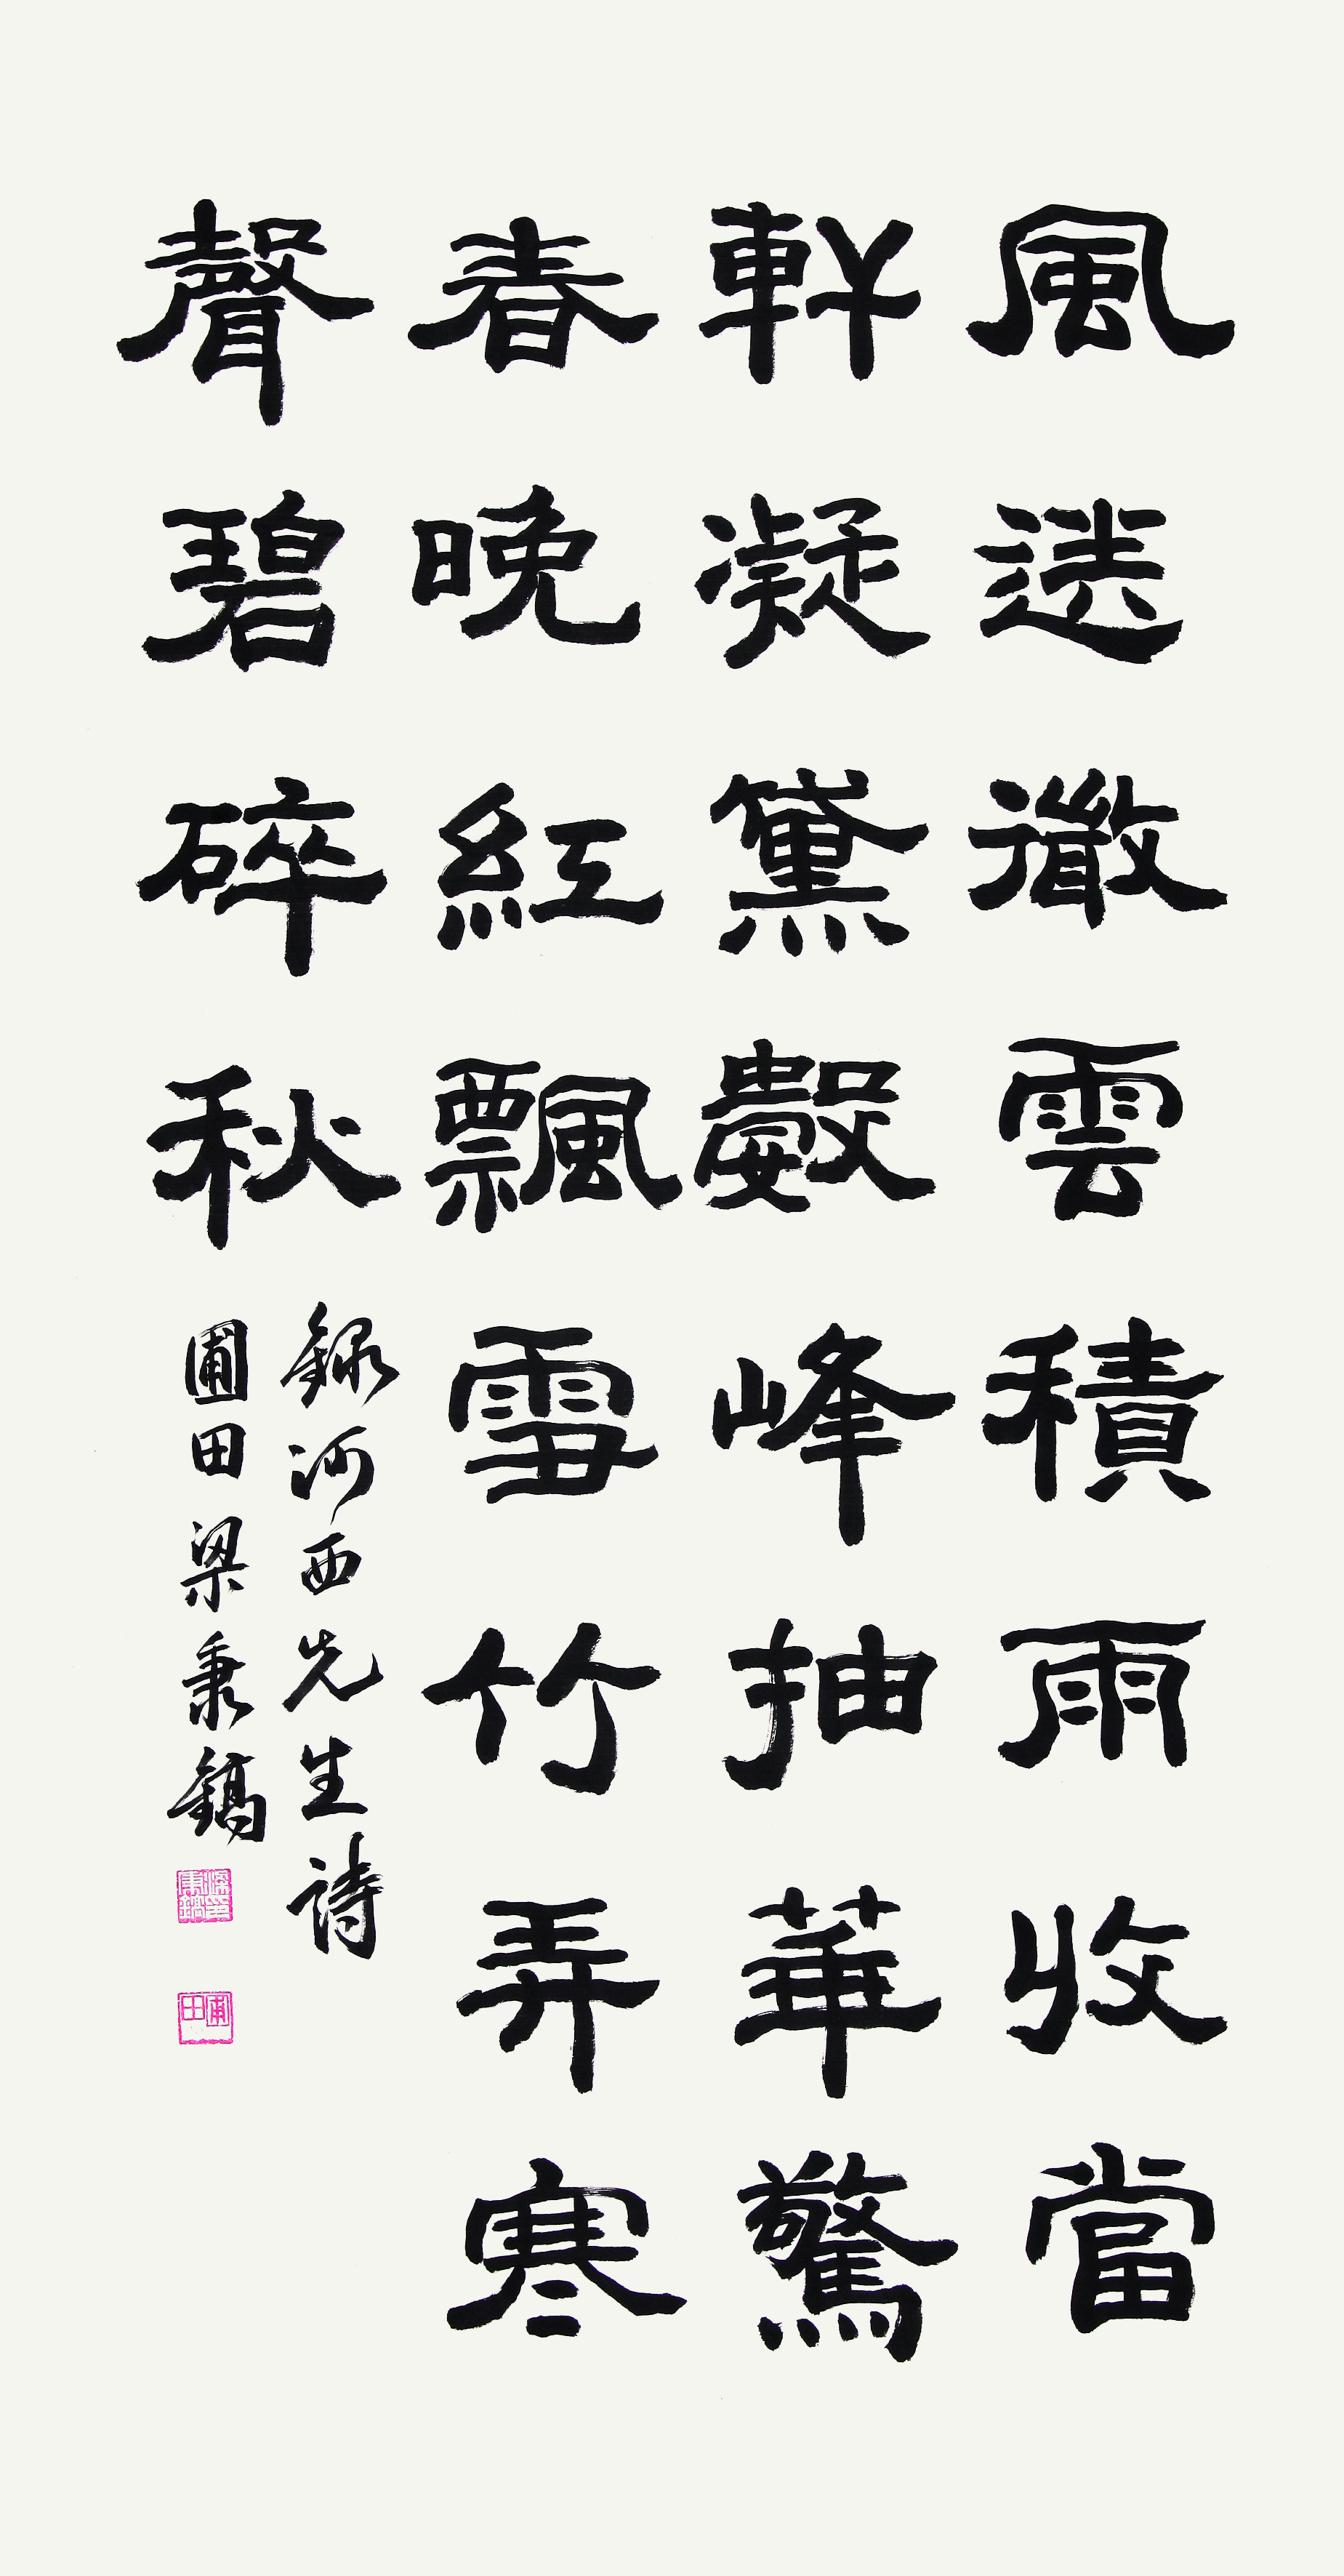 風送微雲積雨收當
軒凝黛數峰抽華驚
春晚紅飄雪竹弄寒
聲碧碎秋
錄河西先生詩
圃田梁秉鎬
梁印秉鎬
圃田